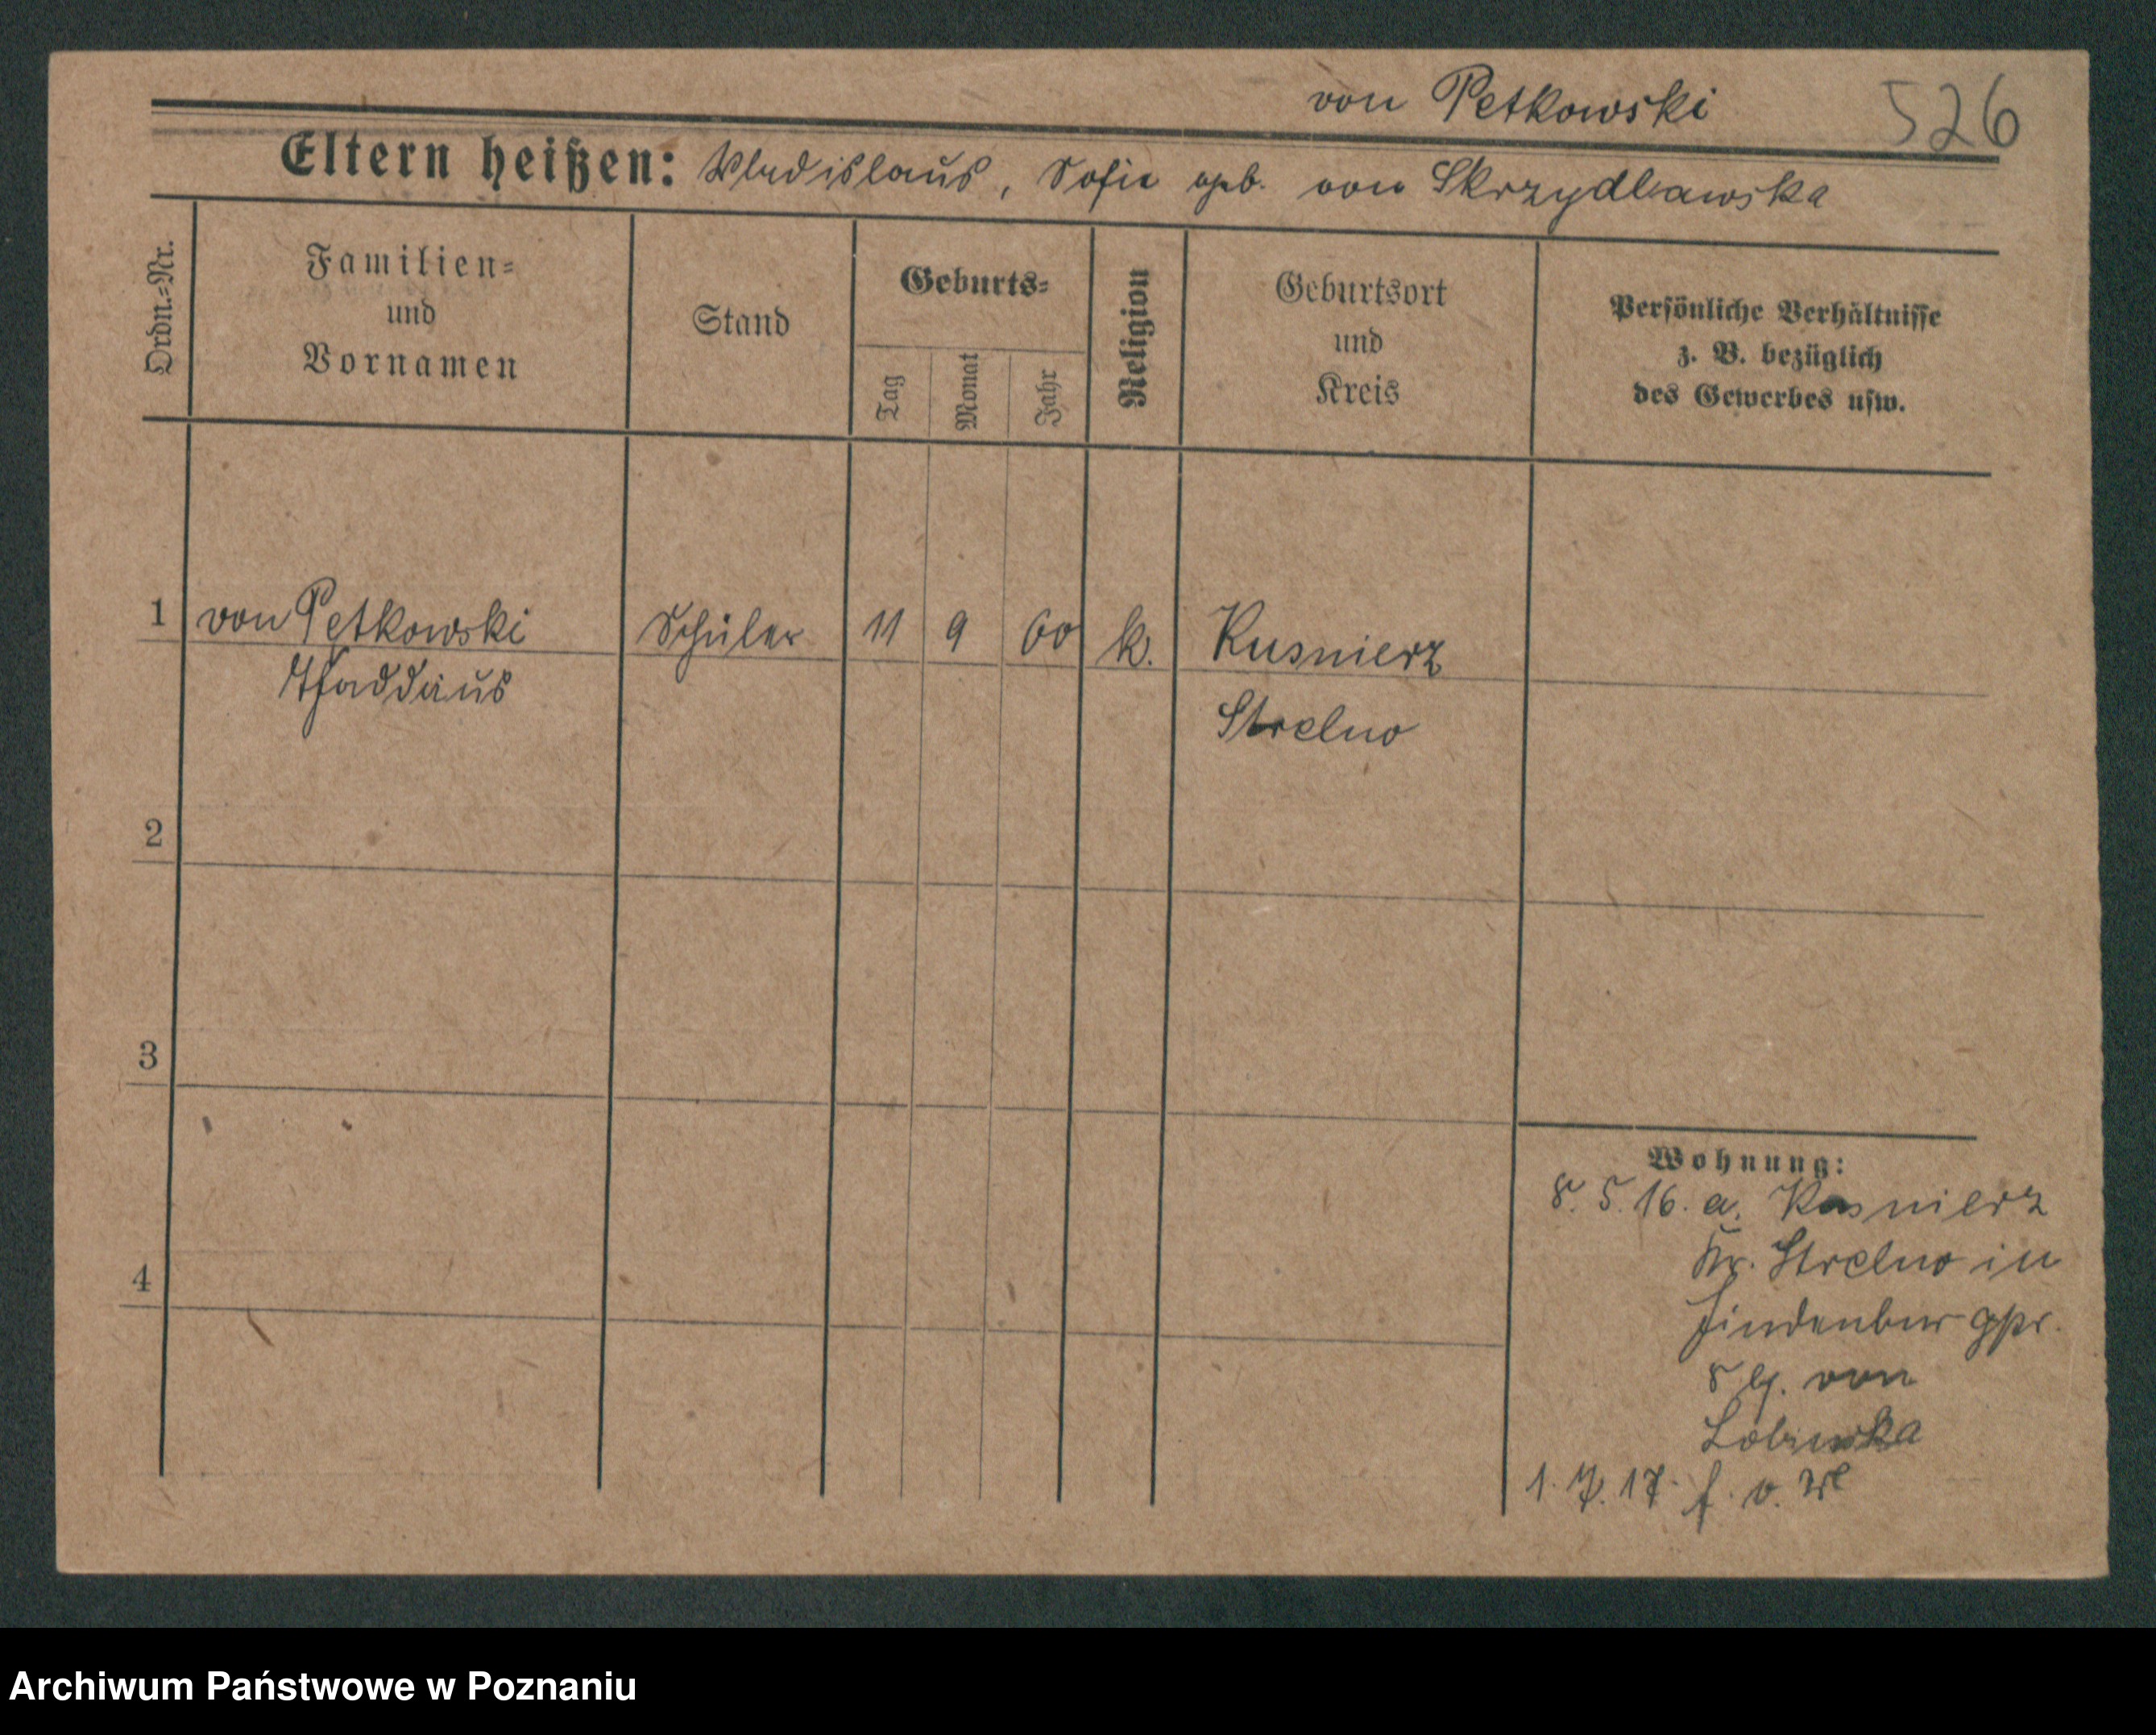 von Petkowski 526
Eltern heißen: Wladislaus, Sofie geb. von Skrzydlewska
Ordn.-Nr.
Familien-
und
Vornamen
Stand
Geburts-
Tag
Monat
Jahr
Religion
Geburtsort
und
Kreis
Persönliche Verhältnisse
z. B. bezüglich
des Gewerbes usw.
1 von Petkowski Schüler 11 9 00 k. Kusnierz
Thaddäus
Strelno
2
3
4
Wohnung:
8. 5. 16. a. Kusnierz
Kr. Strelno in
Hindenburgstr.
von
1. 7. 17. f. v.
Archiwum Państwowe w Poznaniu